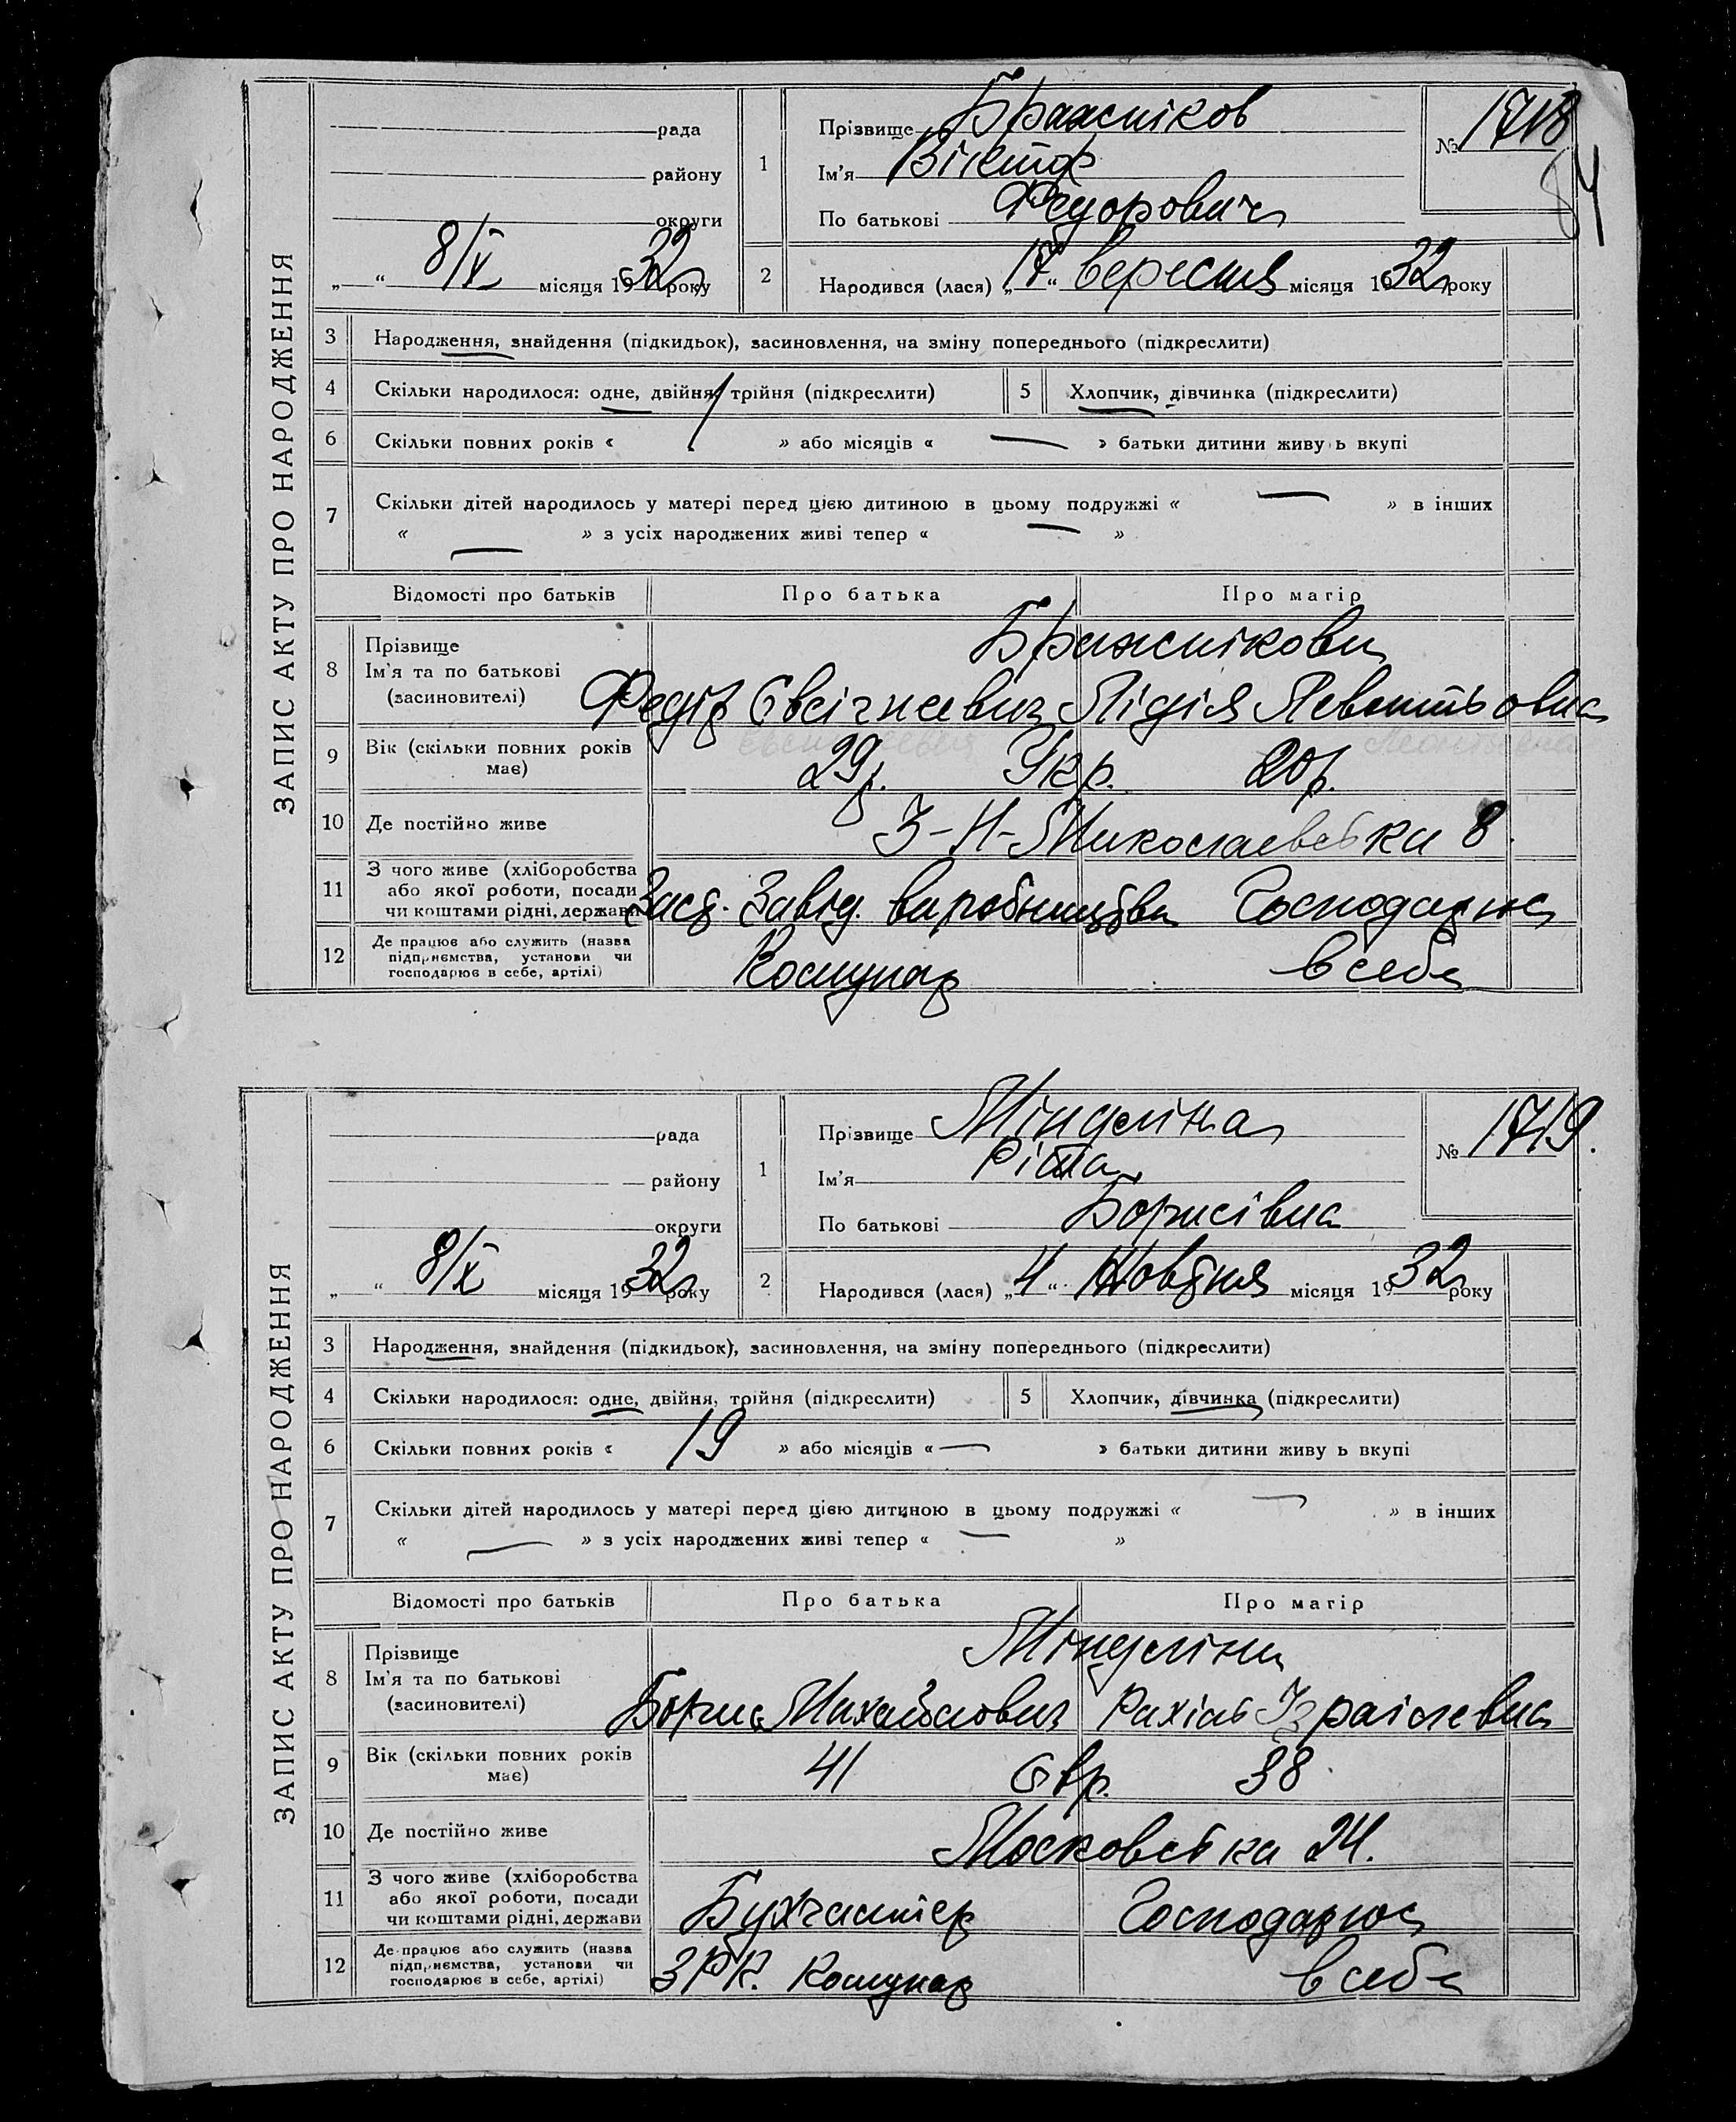 ЗАПИС АКТУ ПРО НАРОДЖЕННЯ
рада
району
округи
„ “ 8/X місяця 1932 року
1 Прізвище Бражніков
Ім'я Віктор
По батькові Федорович
№ 1718
84
2 Народився (лася) „17“ вересня місяця 1932 року
3 Народження, знайдення (підкидьок), засиновлення, на зміну попереднього (підкреслити)
4 Скільки народилося: одне, двійня, трійня (підкреслити) 5 Хлопчик, дівчинка (підкреслити)
6 Скільки повних років « 1 » або місяців « — » батьки дитини живуть вкупі
7 Скільки дітей народилось у матері перед цією дитиною в цьому подружжі « — » в інших
« — » з усіх народжених живі тепер « — »
Відомості про батьків Про батька Про матір
8 Прізвище Бражнікови
Ім'я та по батькові
(засиновителі) Федір Євсігнеевич Лідія Левонтьовна
9 Вік (скільки повних років має) 29 р. Укр. 20 р.
10 Де постійно живе З-Н-Миколаевська 8.
11 З чого живе (хліборобства
або якої роботи, посади
чи коштами рідні, держави Заст. Завід. виробництва Господарює
12 Де працює або служить (назва
підприємства, установи чи
господарює в себе, артілі) Комунар в себе
ЗАПИС АКТУ ПРО НАРОДЖЕННЯ
рада
району
округи
„ “ 8/X місяця 1932 року
1 Прізвище Мінделіна
Ім'я Ріта
По батькові Борисівна
№ 1719.
2 Народився (лася) „4“ Жовтня місяця 1932 року
3 Народження, знайдення (підкидьок), засиновлення, на зміну попереднього (підкреслити)
4 Скільки народилося: одне, двійня, трійня (підкреслити) 5 Хлопчик, дівчинка (підкреслити)
6 Скільки повних років « 19 » або місяців « — » батьки дитини живуть вкупі
7 Скільки дітей народилось у матері перед цією дитиною в цьому подружжі « — » в інших
« — » з усіх народжених живі тепер « — »
Відомості про батьків Про батька Про матір
8 Прізвище Мінделіни
Ім'я та по батькові
(засиновителі) Борис Михайлович Рахіль Ізраілевна
9 Вік (скільки повних років має) 41 Євр. 38
10 Де постійно живе Московська 24.
11 З чого живе (хліборобства
або якої роботи, посади
чи коштами рідні, держави Бухгалтер Господарює
12 Де працює або служить (назва
підприємства, установи чи
господарює в себе, артілі) ЗРК. Комунар в себе